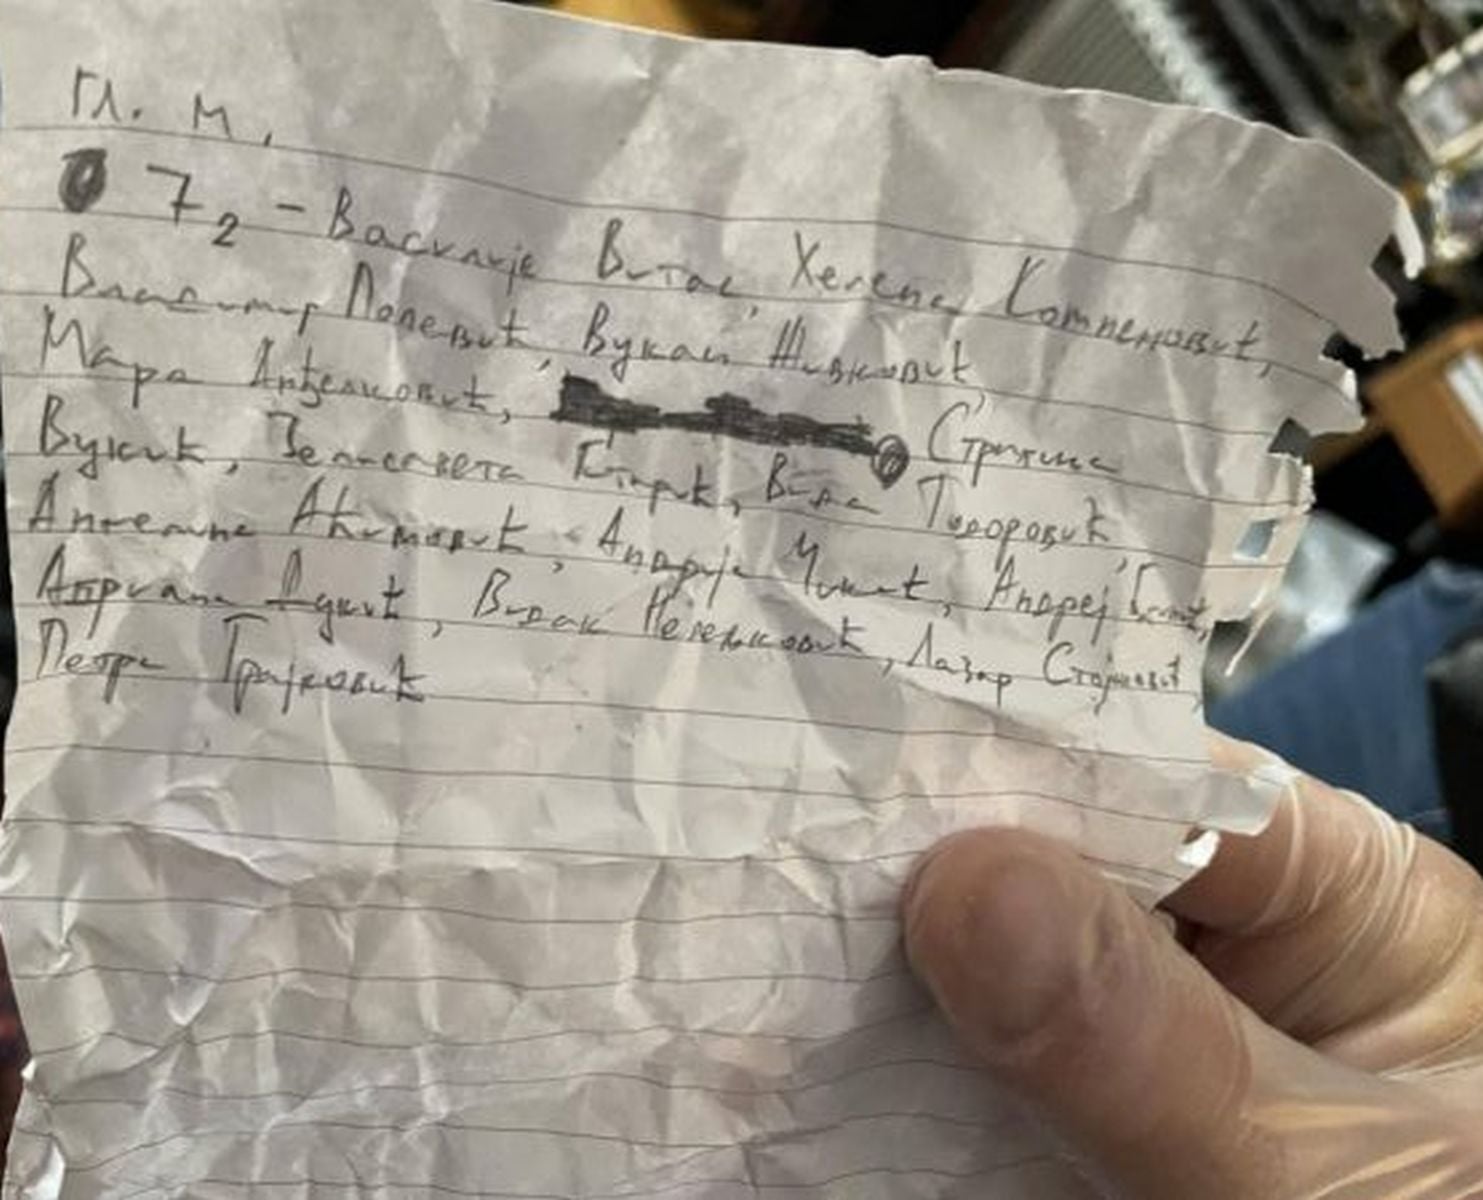 Гл. М.
7₂ - Василије Витас, Хелена Компненовић,
Владимир Поповић, Вукан Живковић,
Мара Анђелковић, Стришна
Вукић, Вида Тодоровић,
Ангелина Аћимовић, Андрија Чикић, Андреј
Адриана Дукић, Видак Недељковић, Лазар Стојановић,
Петра Трајковић